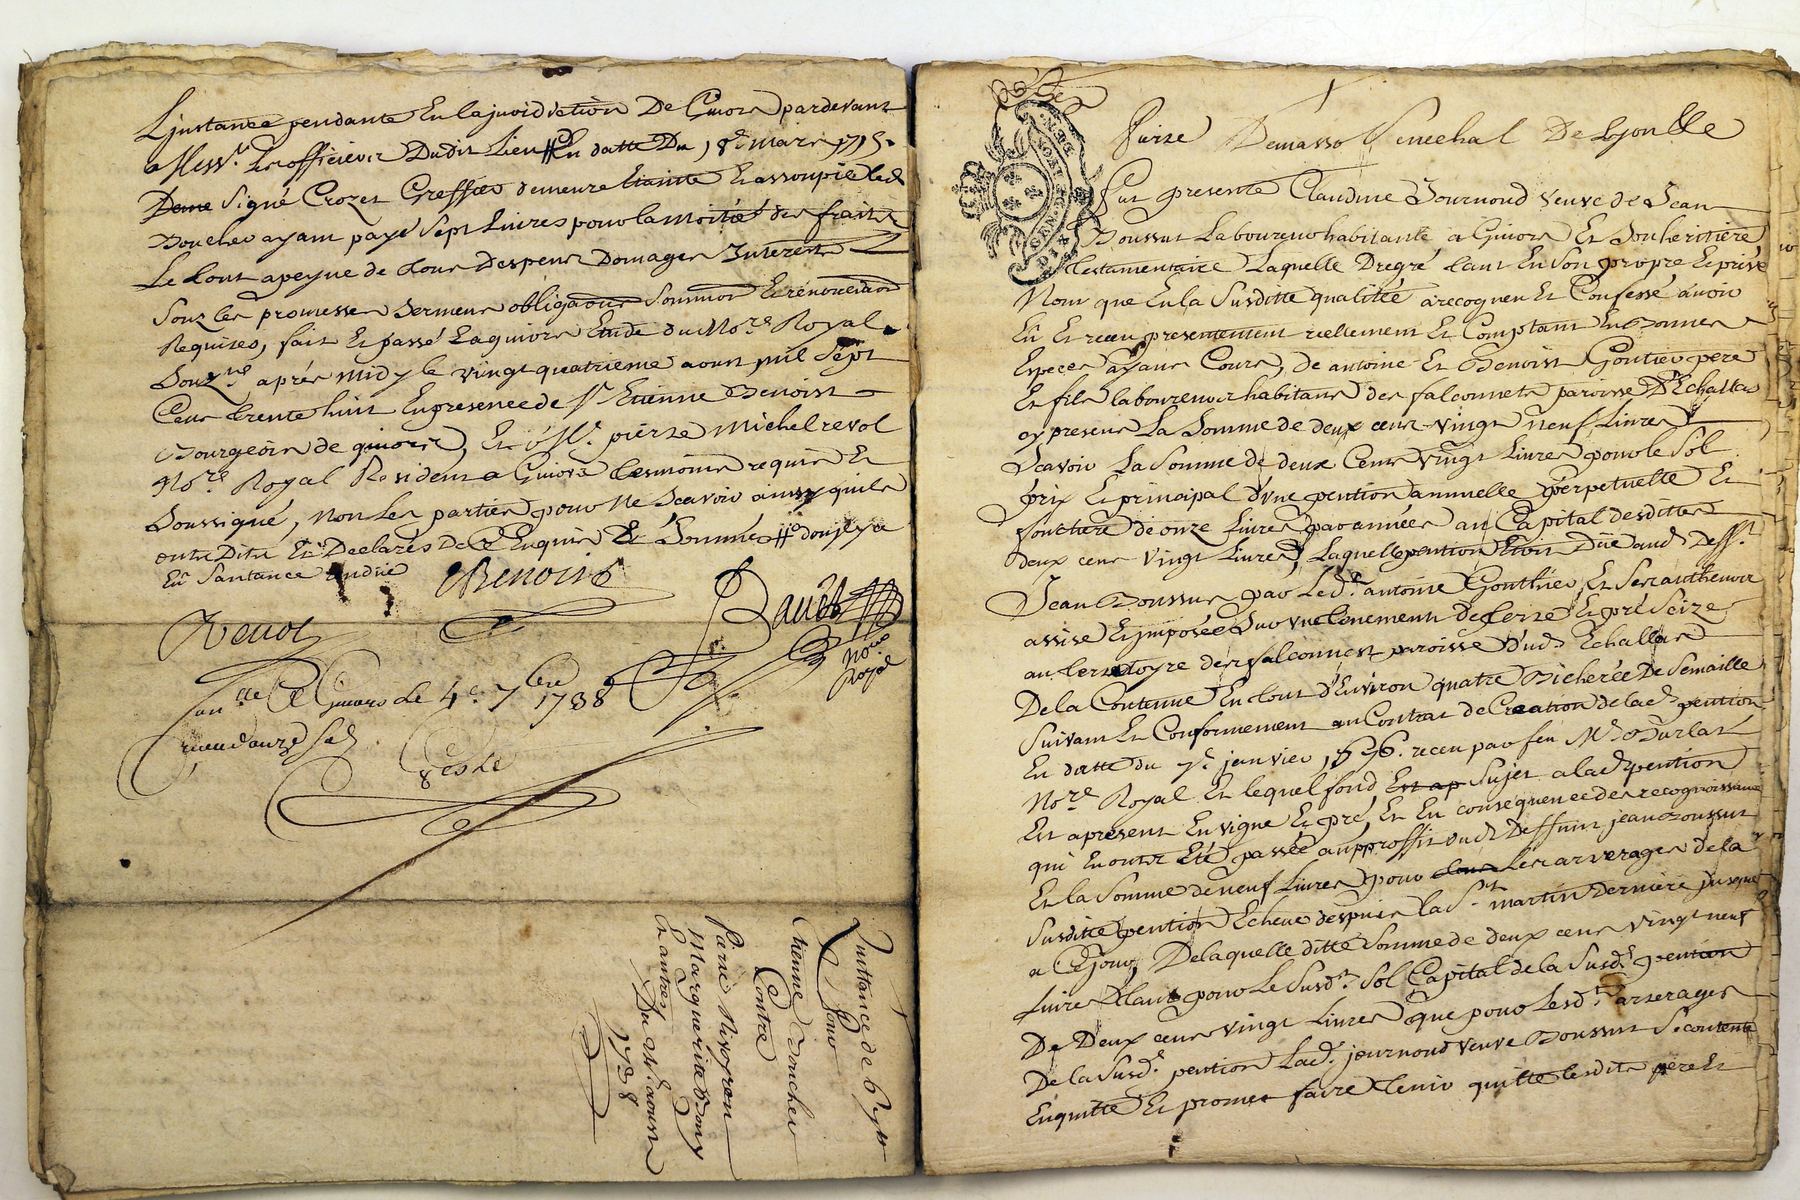 L'instance pendante En la juridiction De Givors pardevant
Mess.rs Les officiers Dudit Lieu En datte Du 18e mars 1715
Signé Crozet Greffier demeure Etainte Et assoupie led.
Boucher ayant payé Sept Livres pour la moitié des frais
Le tout apeyne de tous Despens Domages Interests
Soubs les promesses Serments obligaons Sommon Et renonciaon
Requises, fait Et passé a Givors Etude du No.re Royal
Souz.né aprés midy le vingt quatrieme aoust mil Sept
Cent trente huit En presence de Sr Etienne Benoist
Bourgeois de givors, Et Me. pierre Michel revol
No.re Royal Resident a Givors tesmoins requis Et
Soussigné, Non Les parties pour ne Scavoir ainsy quils
ont Dits Et Declarés De ce Enquis Et Sommés
En Santance
BENOIST
Revol
Bauet
no.re
Royal
Con.llé a Givors le 4e 7bre 1738
receu douze sols
Quittance de 6 #
Pour
Etienne Boucher
Contre
Marguerite
Et autres
Du 24e aoust
1738
Pierre Demasso Senechal De Lyon
Fut presente Claudine Journoud veuve de Jean
Boussut Laboureur habitante a Givors Et Son heritiere
testamentaire Laquelle De gré tant En Son propre Et privé
Nom que En la Susditte qualitté a recogneu Et Confessé avoir
Eu Et receu presentement reellement Et Comptant En Bonnes
Especes ayant Cours, de antoine Et Benoist Gontier pere
Et fils laboureurs habitans des falconnets paroisse D'Echallas
cy presens La Somme de deux cent vingt neuf Livres
Scavoir La Somme de deux Cent vingt Livres pour le Sol
prix Et principal d'une pention annuelle perpetuelle Et
fonciere de onze Livres par année au Capital desdittes
deux cent vingt Livres, Laquelle pention Etoit Düe aud. Deff.t
Jean Boussut par Led. antoine Gonthier Et Ses autheurs
assise Et imposée Sur un tenement de terre Et pré Scize
au terretoyre des falconnest paroisse dud. Echallas
De la Contenue En tout d'Environ quatre Bicherée De Semaille
Suivant Et Conformement au Contrat de Creation de lad. pention
En datte du 7e janvier 1696. receu par feu Me. Durlat
No.re Royal Et lequel fond Sujet a lad. pention
Est apresent En vigne Et pré, Et En consequence des recognoissances
qui En ont Eté passée au proffit dud. Deffunt jean Boussut
Et la Somme de neuf Livres pour Les arrerages de la
Susditte pention Echeue despuis la St. martin Derniere jusques
a Ce jour, De laquelle ditte Somme de deux cent vingt neuf
Livres tant pour Le Susd. Sol Capital de la Susd. pention
De Deux cent vingt Livres que pour Lesd. arrerages
De la Susd. pention Lad. journoud veuve Boussut Se contente
En quitte Et promet faire tenir quitte lesdits pere Et